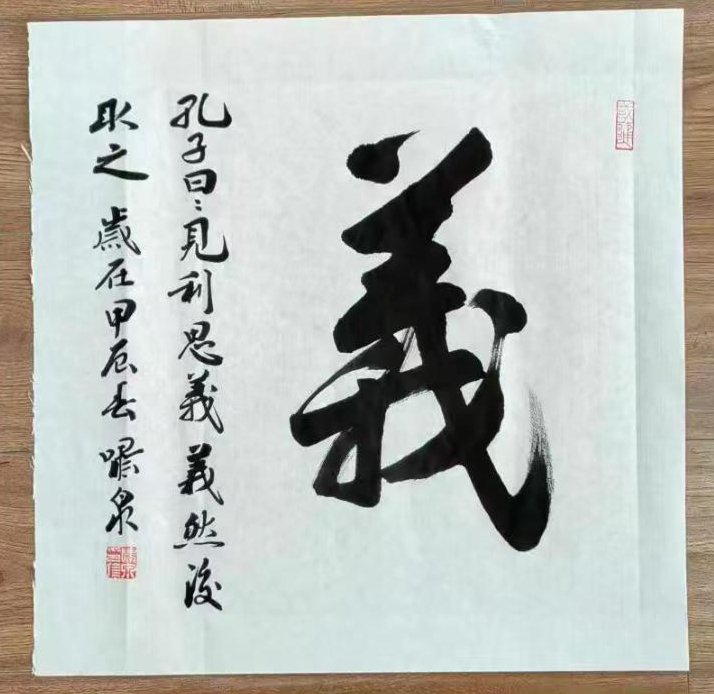 義
孔子曰:見利思義義然後
取之 歲在甲辰春 泉